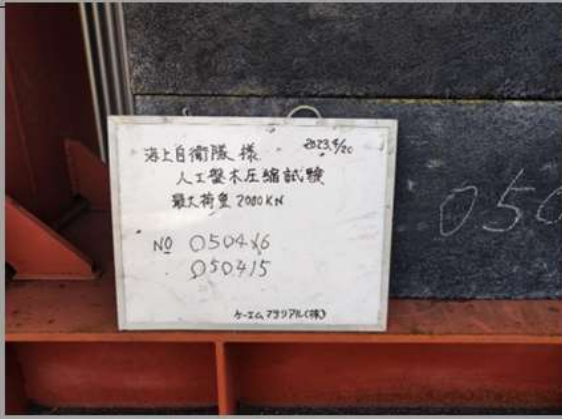 海上自衛隊 様 2023.9/20
人工盤木圧縮試験
最大荷重 2000KN
NO 050416
050415
ケーエムマテリアル(株)
050